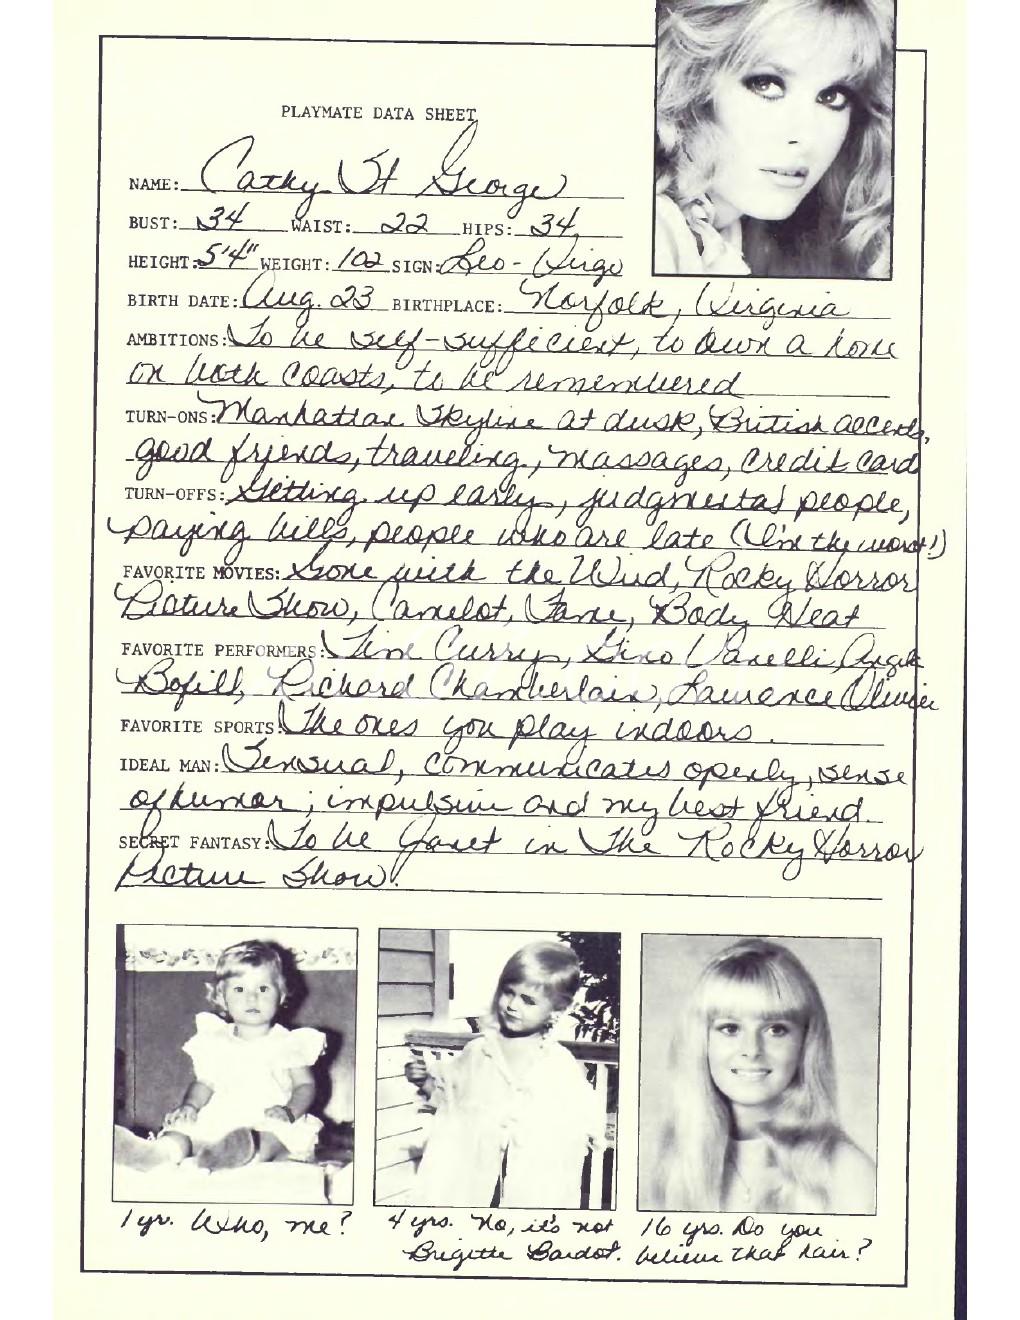 PLAYMATE DATA SHEET
NAME: Cathy St George
BUST: 34 WAIST: 22 HIPS: 34
HEIGHT: 5'4" WEIGHT: 102 SIGN: Leo - Virgo
BIRTH DATE: Aug. 23 BIRTHPLACE: Norfolk, Virginia
AMBITIONS: To be self-sufficient, to own a home
on both coasts, to be remembered
TURN-ONS: Manhattan Skyline at dusk, British accents,
good friends, traveling, massages, credit card
TURN-OFFS: Getting up early, judgmental people,
paying bills, people who are late (I'm the worst!)
FAVORITE MOVIES: Gone with the Wind, Rocky Horror
Picture Show, Camelot, Fame, Body Heat
FAVORITE PERFORMERS: Tim Curry, Gino Vanelli, Angela
Bofill, Richard Chamberlain, Laurence Olivier
FAVORITE SPORTS: The ones you play indoors.
IDEAL MAN: Sensual, communicates openly, sense
of humor; impulsive and my best friend.
SECRET FANTASY: To be Janet in The Rocky Horror
Picture Show!
1 yr. Who, me?
4 yrs. No, it's not
Brigitte Bardot.
16 yrs. Do you
believe that hair?